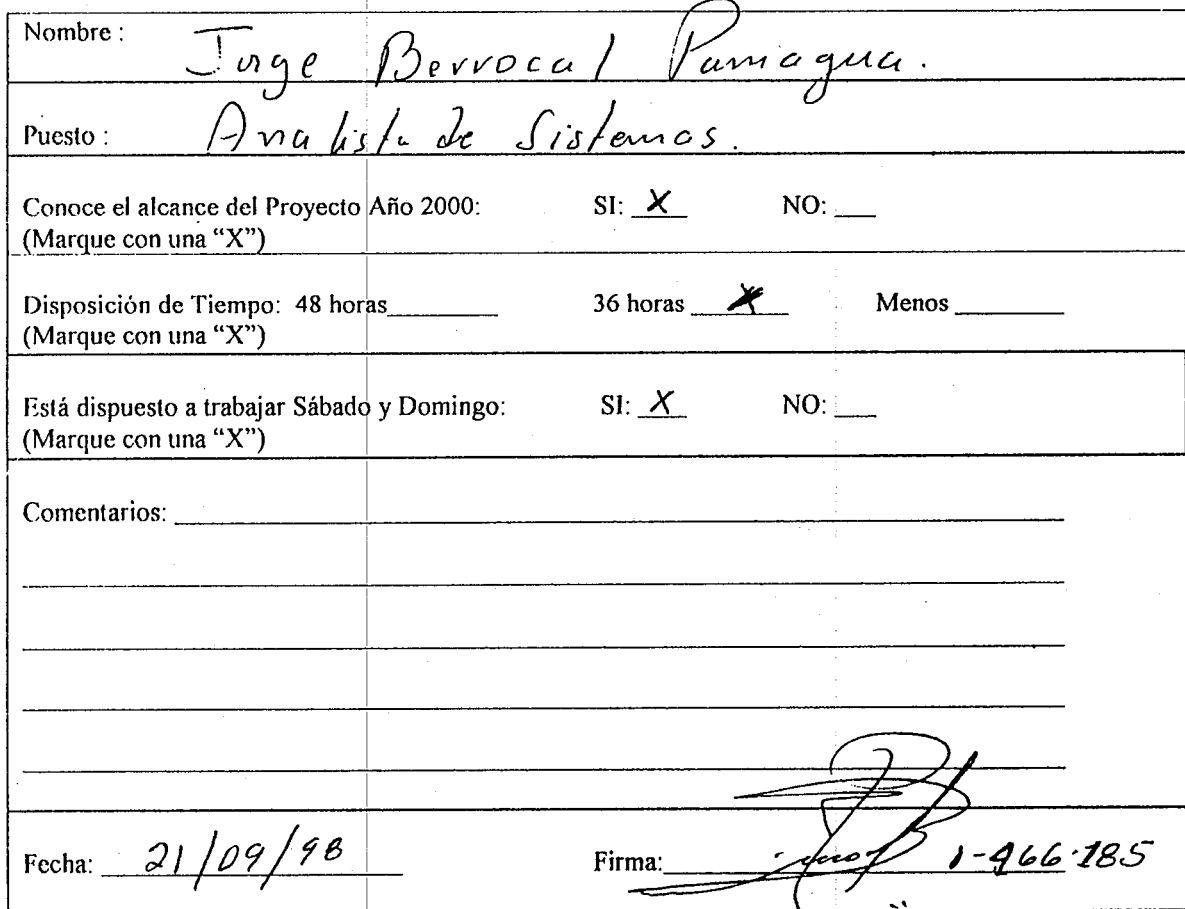 Nombre : Jorge Berrocal Paniagua.
Puesto : Analista de Sistemas.
Conoce el alcance del Proyecto Año 2000: SI: X NO: ___
(Marque con una “X”)
Disposición de Tiempo: 48 horas________ 36 horas X Menos ________
(Marque con una “X”)
Está dispuesto a trabajar Sábado y Domingo: SI: X NO: ___
(Marque con una “X”)
Comentarios:
Fecha: 21/09/98 Firma: 1-466-185